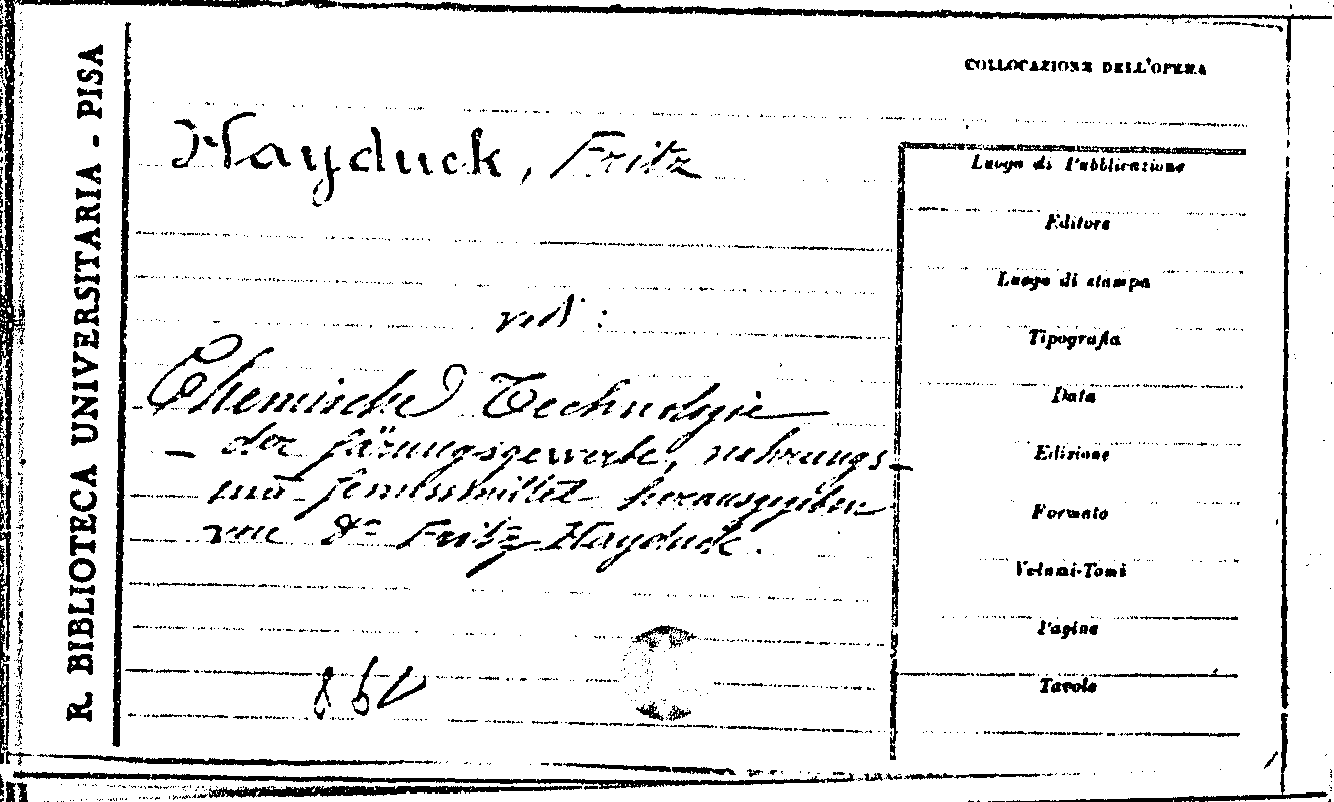 R. BIBLIOTECA UNIVERSITARIA - PISA
COLLOCAZIONE DELL'OPERA
Hayduck, Fritz
ved:
Chemische Technologie
- der färungsgewerbe, nahrungs-
und fenussmittel herausgegeben
von Dr Fritz Hayduck.
Luogo di Pubblicazione
Editore
Luogo di stampa
Tipografia
Data
Edizione
Formato
Volumi-Tomi
Pagine
Tavole